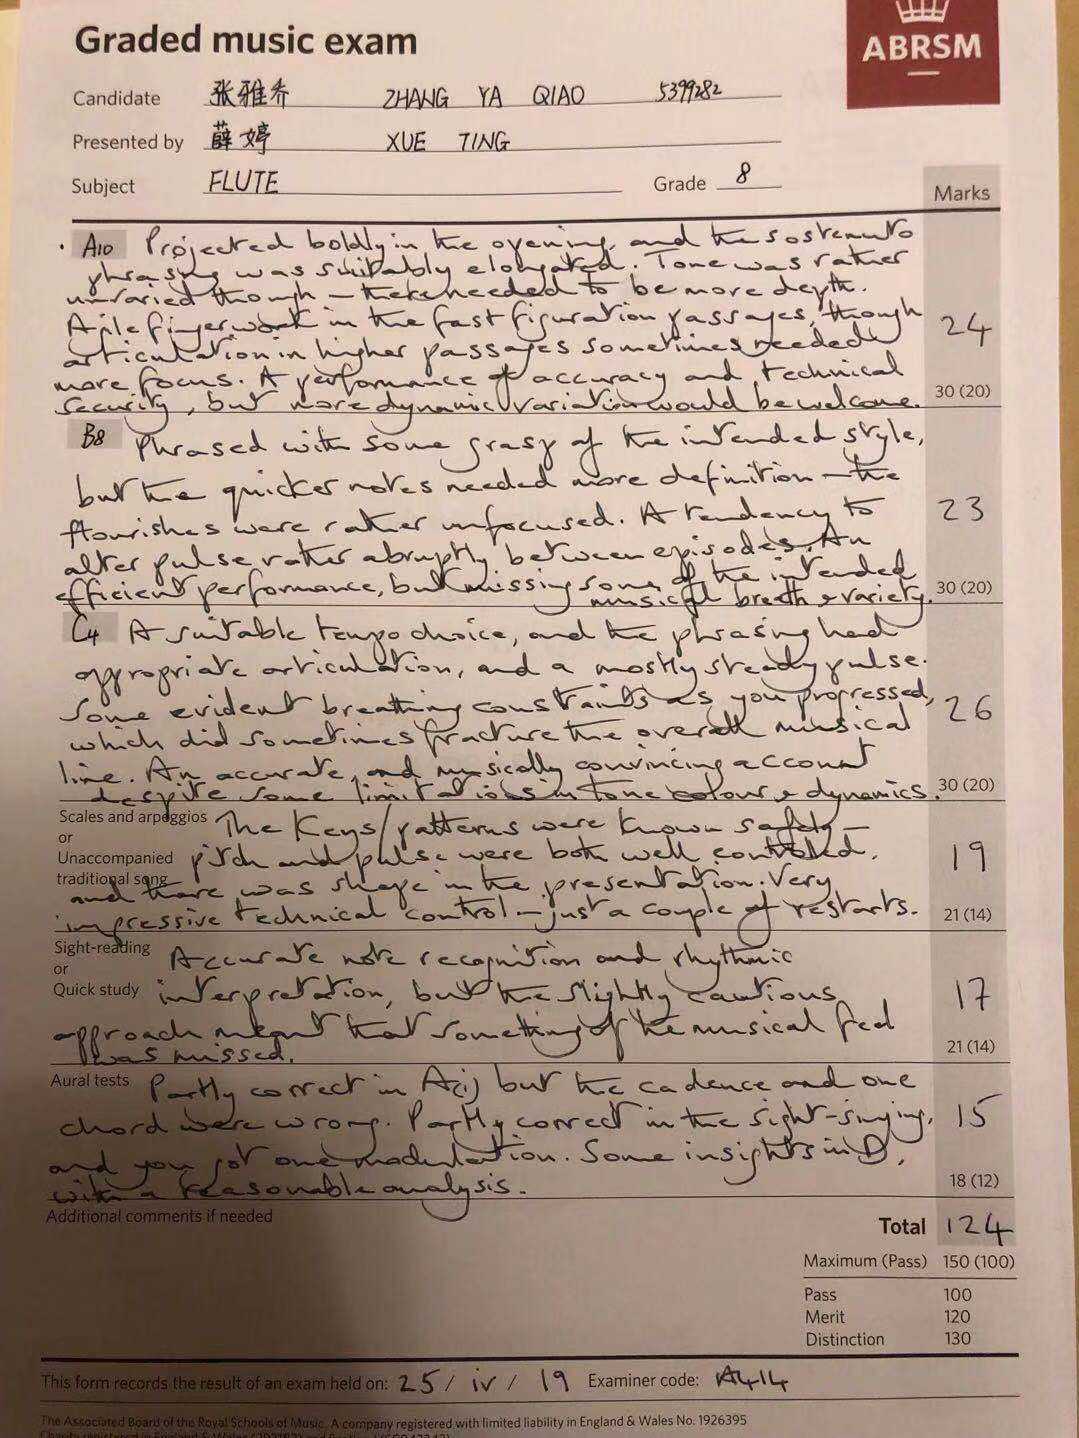 Graded music exam
ABRSM
Candidate 张雅乔 ZHANG YA QIAO 5399282
Presented by 薛婷 XUE TING
Subject FLUTE Grade 8
Marks
A10 Projected boldly in the opening, and the sostenuto
phrasing was suitably elongated. Tone was rather
unvaried though - there needed to be more depth.
Agile fingerwork in the fast figuration passages, though
articulation in higher passages sometimes needed
more focus. A performance of accuracy and technical
security, but more dynamic variation would be welcome.
24
30 (20)
B8 Phrased with some grasp of the intended style,
but the quicker notes needed more definition - the
flourishes were rather unfocused. A tendency to
alter pulse rather abruptly between episodes. An
efficient performance, but missing some of the intended
musical breath & variety.
23
30 (20)
C4 A suitable tempo choice, and the phrasing had
appropriate articulation, and a mostly steady pulse.
Some evident breathing constraints as you progressed,
which did sometimes fracture the overall musical
line. An accurate, and musically convincing account
despite some limitations in tone colour & dynamics.
26
30 (20)
Scales and arpeggios
or
Unaccompanied
traditional song
The Keys/patterns were known safely -
pitch and pulse were both well controlled,
and there was shape in the presentation. Very
impressive technical control - just a couple of restarts.
19
21 (14)
Sight-reading
or
Quick study
Accurate note recognition and rhythmic
interpretation, but the slightly cautious
approach meant that something of the musical feel
was missed.
17
21 (14)
Aural tests Partly correct in A(i) but the cadence and one
chord were wrong. Partly correct in the sight-singing,
and you got one modulation. Some insights in D,
with a reasonable analysis.
15
18 (12)
Additional comments if needed
Total 124
Maximum (Pass) 150 (100)
Pass 100
Merit 120
Distinction 130
This form records the result of an exam held on: 25 / iv / 19 Examiner code: A414
The Associated Board of the Royal Schools of Music. A company registered with limited liability in England & Wales No. 1926395